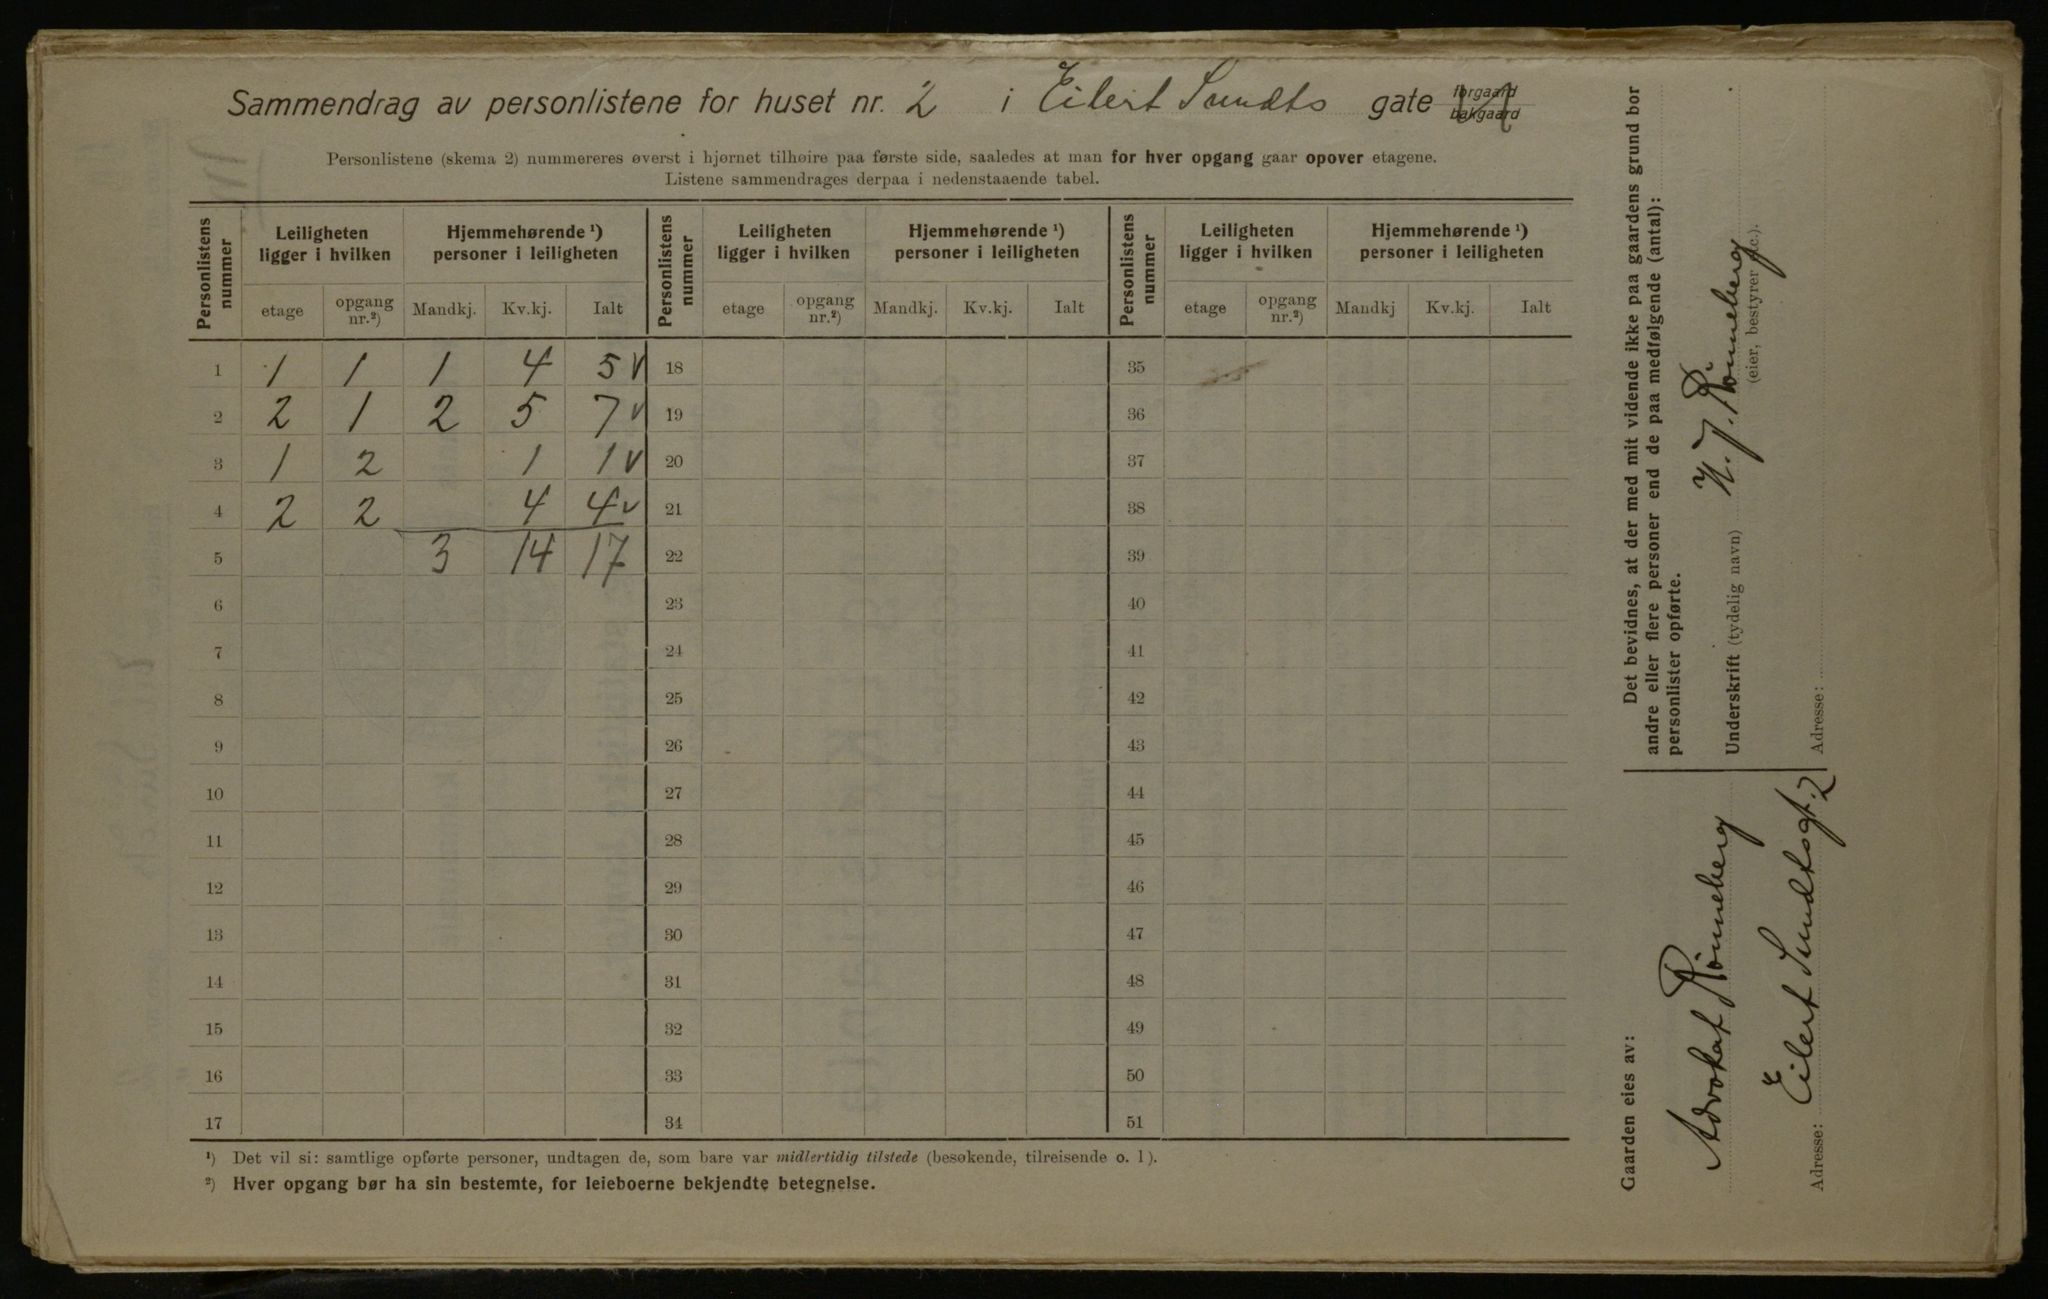 Sammendrag av personlistene for huset nr. 2 i Eilert Sundts gate forgaard bakgaard
Personlistene (skema 2) nummereres øverst i hjørnet tilhøire paa første side, saaledes at man for hver opgang gaar opover etagene.
Listene sammendrages derpaa i nedenstaaende tabel.
Personlistens nummer | Leiligheten ligger i hvilken | Hjemmehørende ¹) personer i leiligheten | Personlistens nummer | Leiligheten ligger i hvilken | Hjemmehørende ¹) personer i leiligheten | Personlistens nummer | Leiligheten ligger i hvilken | Hjemmehørende ¹) personer i leiligheten
etage | opgang nr.²) | Mandkj. | Kv.kj. | Ialt | etage | opgang nr.²) | Mandkj. | Kv.kj. | Ialt | etage | opgang nr.²) | Mandkj | Kv.kj. | Ialt
1 1 1 1 4 5 v 18 35
2 2 1 2 5 7 v 19 36
3 1 2 1 1 v 20 37
4 2 2 4 4 v 21 38
5 3 14 17 22 39
6 23 40
7 24 41
8 25 42
9 26 43
10 27 44
11 28 45
12 29 46
13 30 47
14 31 48
15 32 49
16 33 50
17 34 51
¹) Det vil si: samtlige opførte personer, undtagen de, som bare var midlertidig tilstede (besøkende, tilreisende o. l).
²) Hver opgang bør ha sin bestemte, for leieboerne bekjendte betegnelse.
Det bevidnes, at der med mit vidende ikke paa gaardens grund bor
andre eller flere personer end de paa medfølgende (antal):
personlister opførte.
Underskrift (tydelig navn) H. J. Rönneberg
(eier, bestyrer etc.).
Adresse:
Gaarden eies av:
Advokat Rönneberg
Adresse: Eilert Sundtsgt. 2